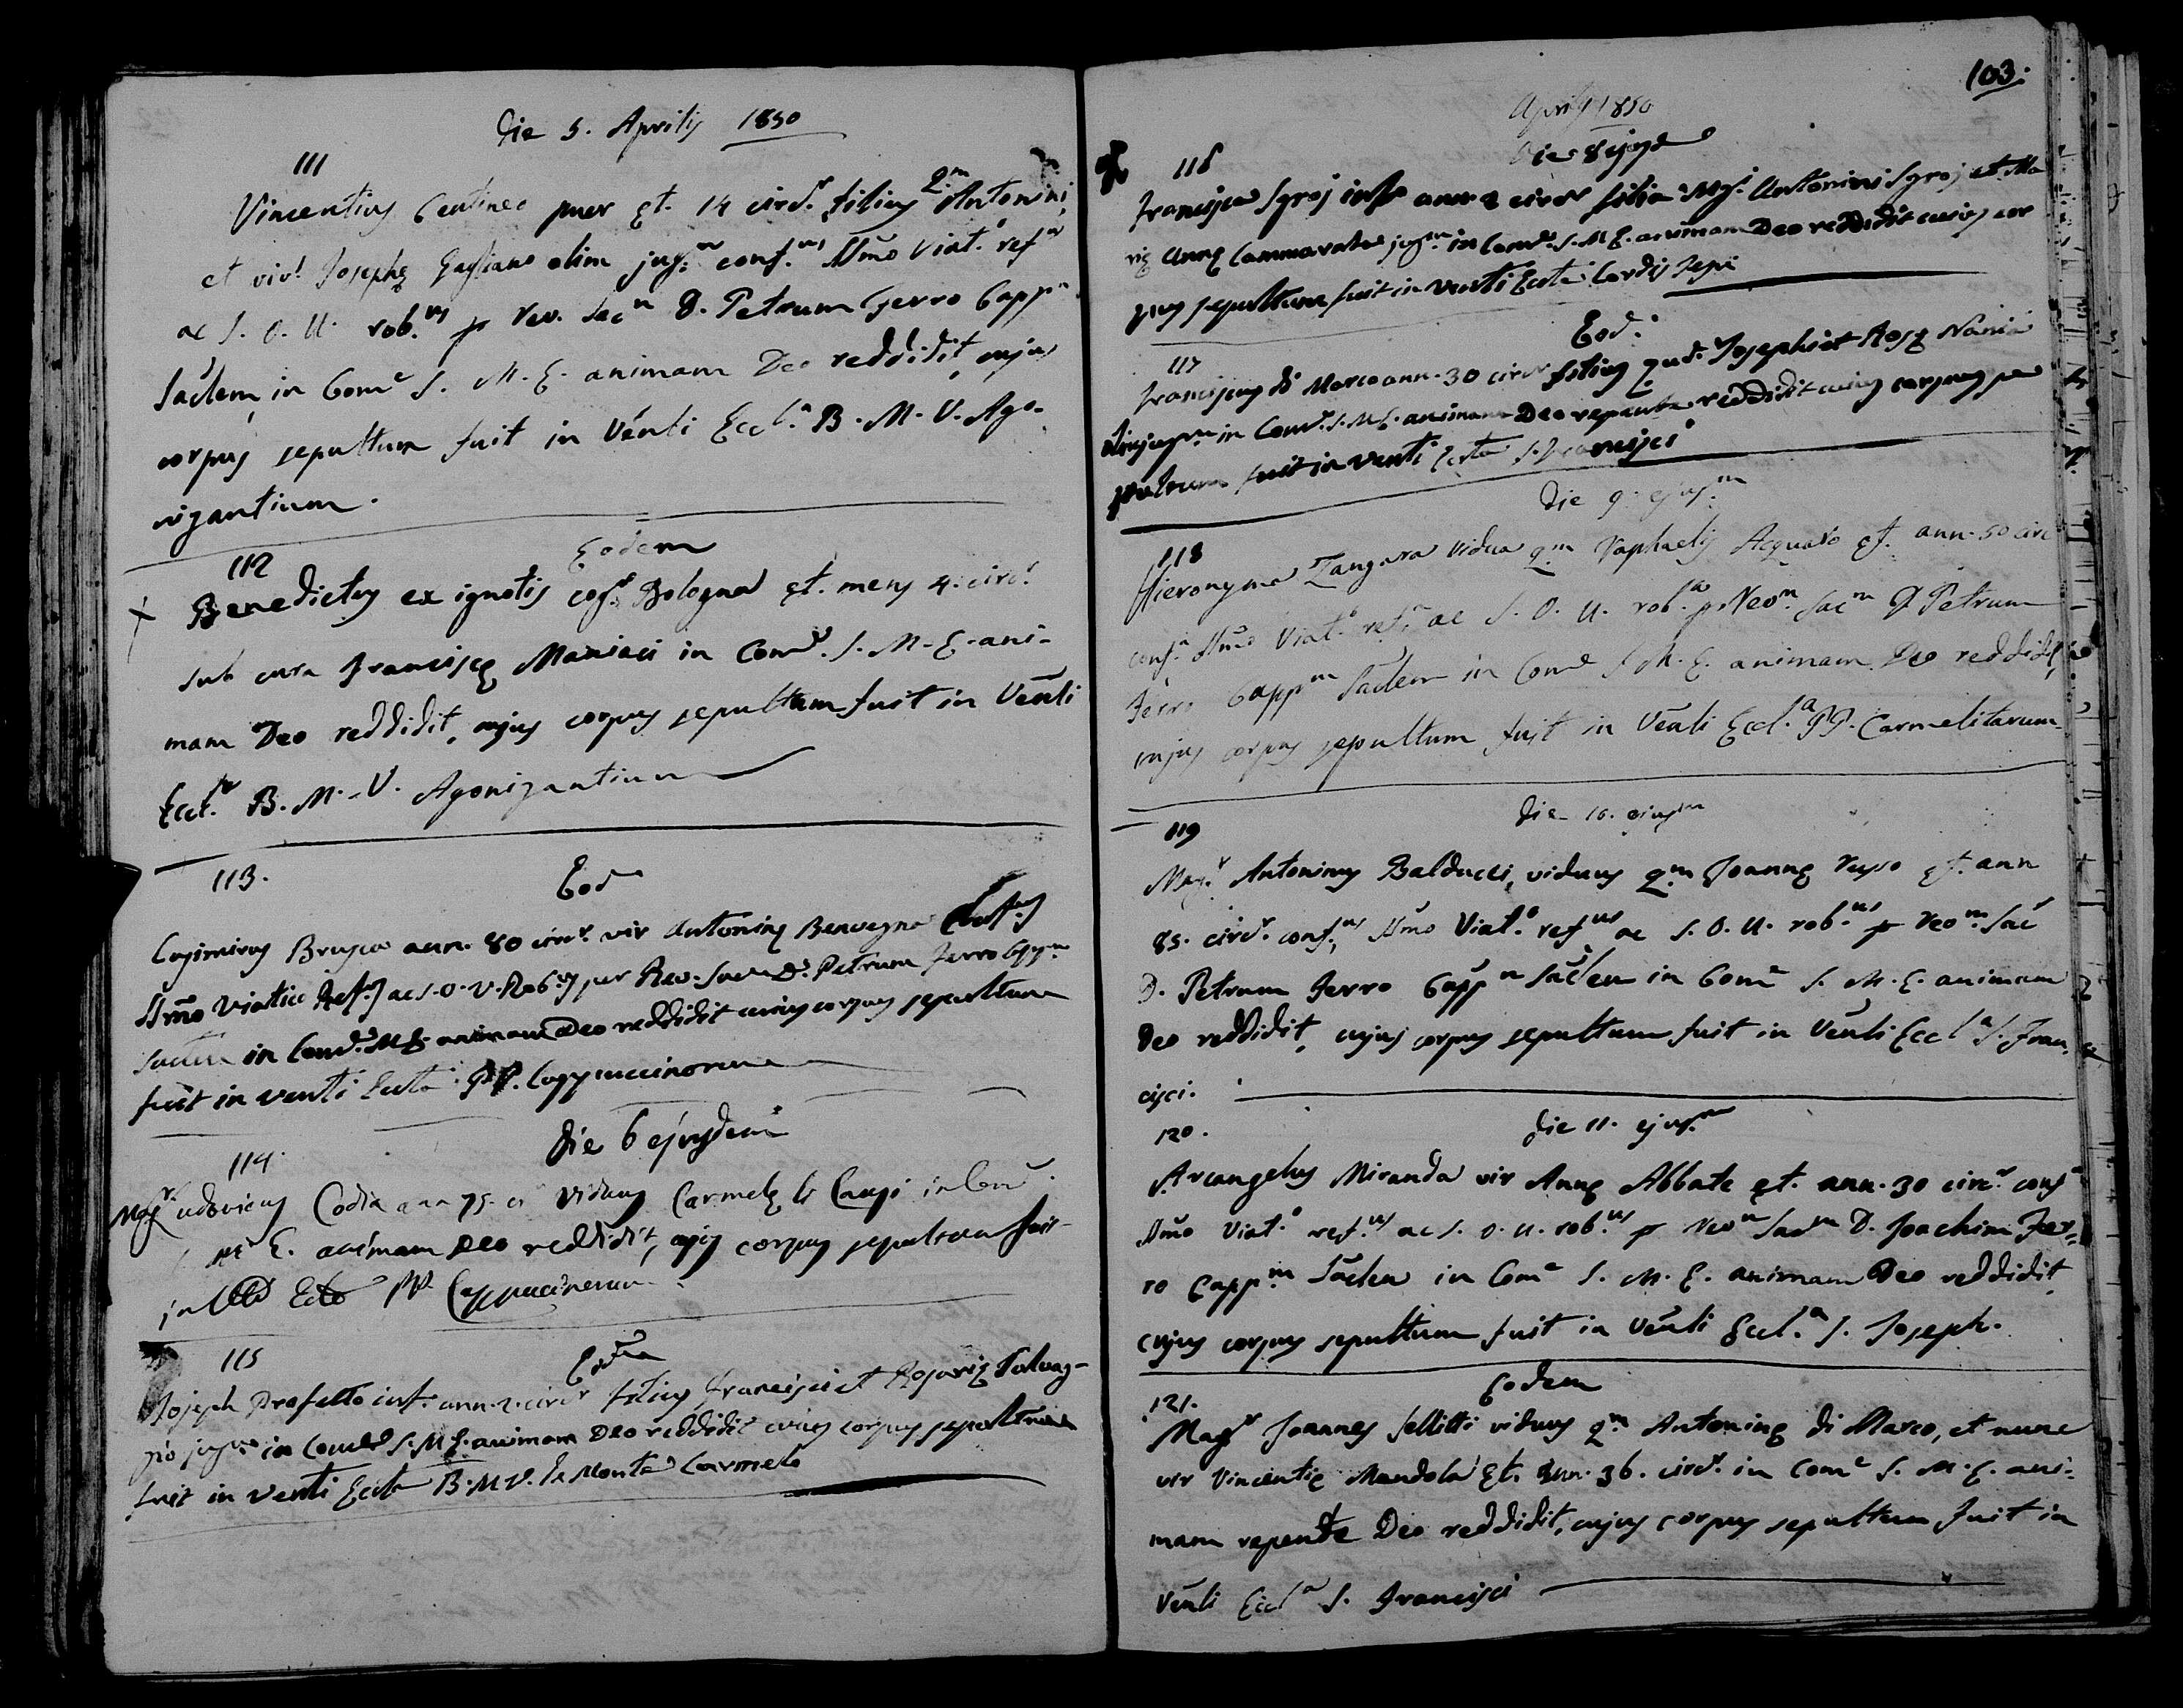 Die 5. Aprilis 1850
111
Vincentius Centineo puer ęt. 14 circ.r filius q.m Antonini,
et viv.s Josephę Gagliano olim jug.m conf.us SSmo Viat.o ref.us
ac S. O. U. rob.us pr Rev. Sac.m D. Petrum Ferro Capp.m
Sacłem, in Com.e S. M. E. animam Deo reddidit, cujus
corpus sepultum fuit in Venłi Eccl.a B. M. V. Ago-
nizantium.
112
Eodem
Benedictus ex ignotis cog.e Bologna ęt. mens 4. circ.r
sub cura Franciscę Maniaci in Com.e S. M. E. ani-
mam Deo reddidit, cujus corpus sepultum fuit in Venłi
Eccl.a B. M. V. Agonizantium
113.
Eod
Casimirus Brusca ann. 80 circ.r vir Antoninę Benvegna Conf.us
SSmo Viatico Ref.us ac S. O. U. Rob.us per Rev. Sacm D. Petrum Ferro Capp.m
Sactem in Com.e S. M. E. animam Deo reddidit cuius corpus sepultum
fuit in venłi Ecctā PP. Cappuccinorum
Die 6 ejusdem
114.
Mag.r Ludovicus Codia ann 75. cr viduus Carmelę Lo Campi in Com.
M E. animam Deo reddidit, cujus corpus sepultum fuit
in Ecta PP. Cappuccinorum
115
Eodem
Joseph Profetto inf. ann. 2. circ.r filius Francisci et Rosarię Salvag-
gio jug.m in Com.e S. M. E. animam Deo reddidit cuius corpus sepultum
fuit in venłi Eccta B. M. V. de Monte Carmelo
103.
Aprilis 1850
Die 8 ejusd
116
Francisca Sgroj infs ann 2 circr filia Mgi. Antonini Sgroj et Ma
rię Annę Cammarata jug.m in Com.e S. M. E. animam Deo reddidit cuius cor
pus sepultum fuit in venłi Eccta Cordis Jesu
Eod.
117
Franciscus di Marco ann. 30 circr filius qud. Josephi et Rosę Nania
olim jug.m in Com.e S. M. E. animam Deo repente reddidit cuius corpus se
pultum fuit in venłi Eccta S. Francisci
Die 9. ejus.m
118
Hieronyma Zangara vidua q.m Raphaelis Acquaro ęt. ann. 50 circ
conf.a SSmo Viat.o ref.a ac S. O. U. rob.a pr Rev.m Sac.m D. Petrum
Ferro Capp.m Sacłem in Com.e S. M. E. animam Deo reddidit,
cujus corpus sepultum fuit in Venłi Eccl.a PP. Carmelitarum
Die 10. ejus.m
119
Mag.r Antoninus Balducci, viduus q.m Joannę Russo ęt. ann
85. circ.r conf.us SSmo Viat.o ref.us ac S. O. U. rob.us pr Rev.m Sac
D. Petrum Ferro Capp.m Sacłem in Com.e S. M. E. animam
Deo reddidit, cujus corpus sepultum fuit in Venłi Eccl.a S. Fran-
cisci.
120.
Die 11. ejus.m
Arcangelus Miranda vir Annę Abbate ęt. ann. 30 circ.r conf
SSmo Viat.o ref.us ac S. O. U. rob.us pr Rev.m Sac.m D. Joachim Fer-
ro Capp.m Sacłem in Com.e S. M. E. animam Deo reddidit,
cujus corpus sepultum fuit in Venłi Eccl.a S. Joseph.
Eodem
121.
Mag.r Joannes Sellitti viduus q.m Antoninę di Marco, et nunc
vir Vincentię Mandola ęt. ann. 36. circ.r in Com.e S. M. E. ani-
mam repente Deo reddidit, cujus corpus sepultum fuit in
Venłi Eccl.a S. Francisci